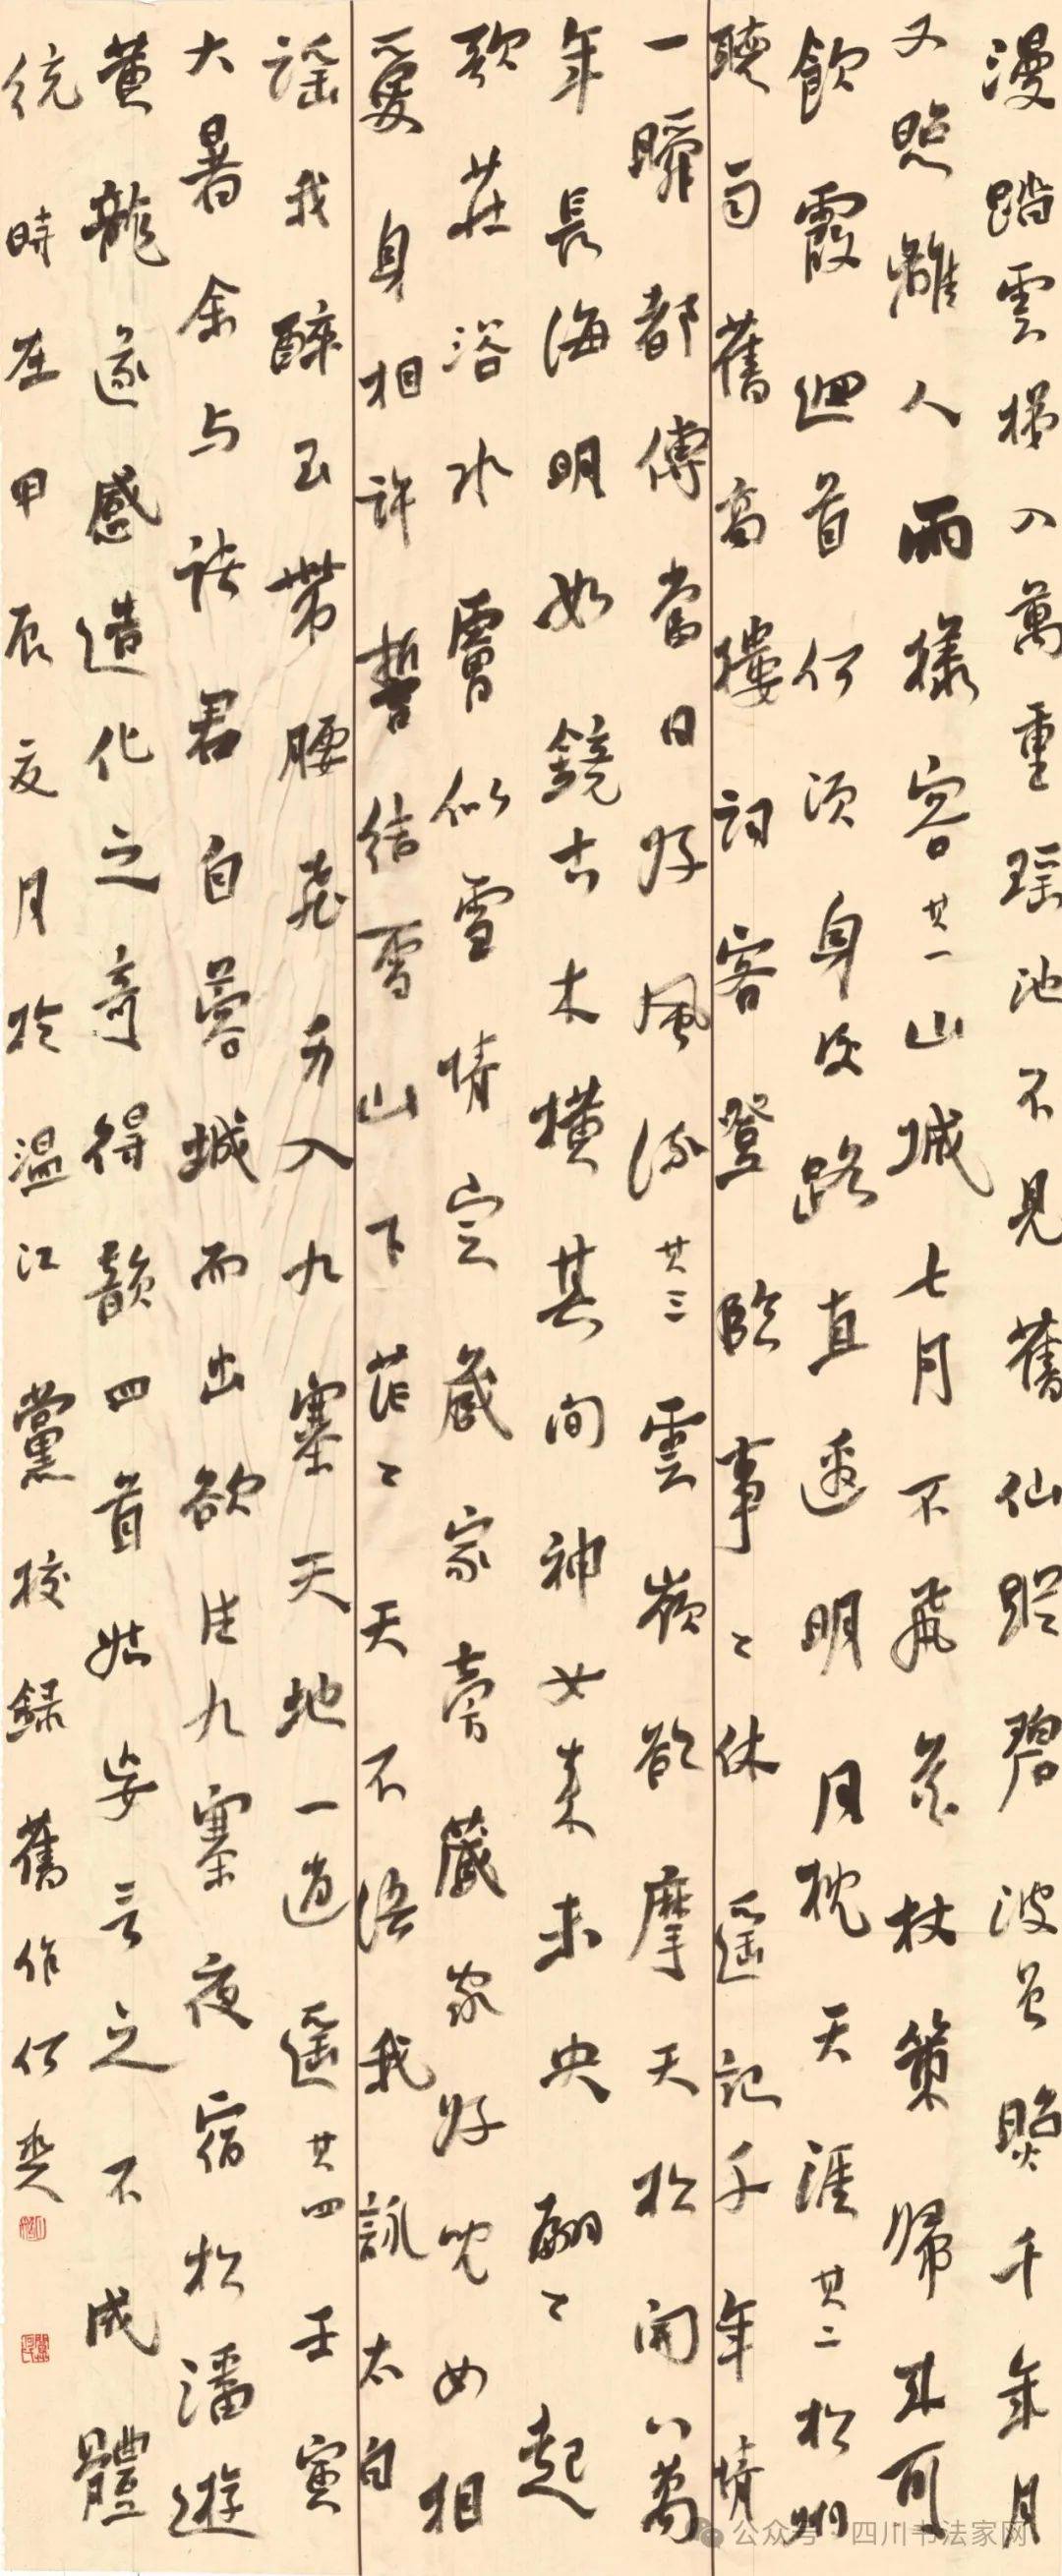 漫踏雲梯入萬重瑤池不見舊仙蹤碧波曾照千年月
又照離人兩樣容其一山城七月不飛花杖策歸來可
飲霞迴首何須身後路直透明月枕天涯其二松州
曉舊高樓詞客登臨事事休遥記千年情
一瞬都傳當日好風流其三雲嶺欲摩天松開八萬
年長海明如鏡古木橫其間神女來未央翩翩起
歌莊浴水膚似雪情定藏家旁藏家好兒女相
愛身相許誓結雪山下茫茫天不語我詠太白
謠我醉玉帶腰飛身入九寨天地一逍遙其四壬寅
大暑余与諸君自蓉城而出欲往九寨夜宿松潘遊
黃龍遂感造化之奇得韻四首姑妄言之不成體
統時在甲辰夏月於溫江黨校錄舊作何
公众号·四川书法家网